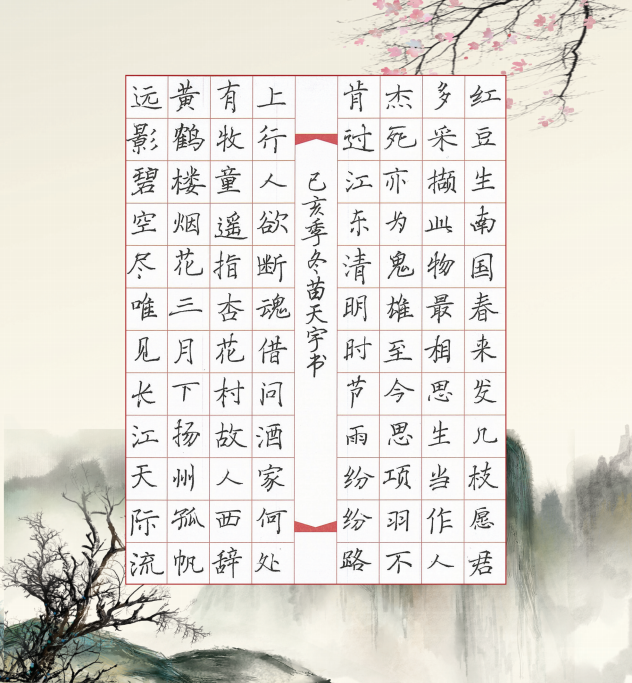 红豆生南国春来发几枝愿君
多采撷此物最相思生当作人
杰死亦为鬼雄至今思项羽不
肯过江东清明时节雨纷纷路
己亥季冬苗天宇书
上行人欲断魂借问酒家何处
有牧童遥指杏花村故人西辞
黄鹤楼烟花三月下扬州孤帆
远影碧空尽唯见长江天际流